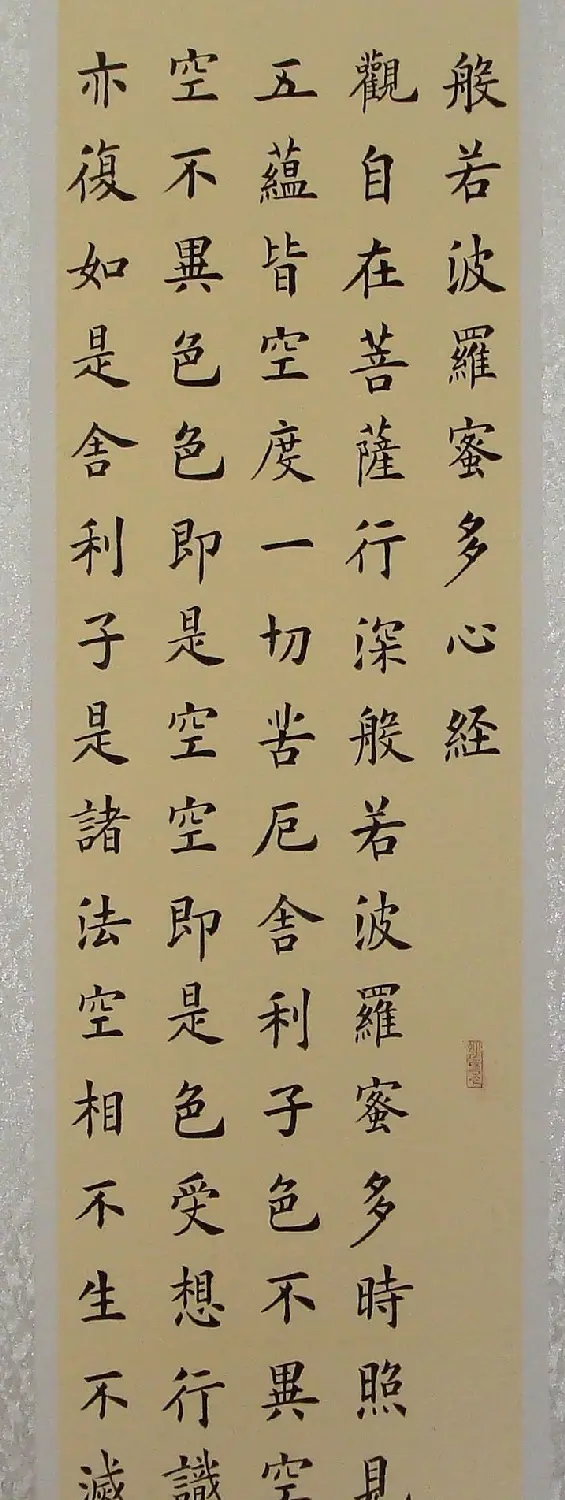 般若波羅蜜多心経
觀自在菩薩行深般若波羅蜜多時照見
五蘊皆空度一切苦厄舍利子色不異空
空不異色色即是空空即是色受想行識
亦復如是舍利子是諸法空相不生不滅